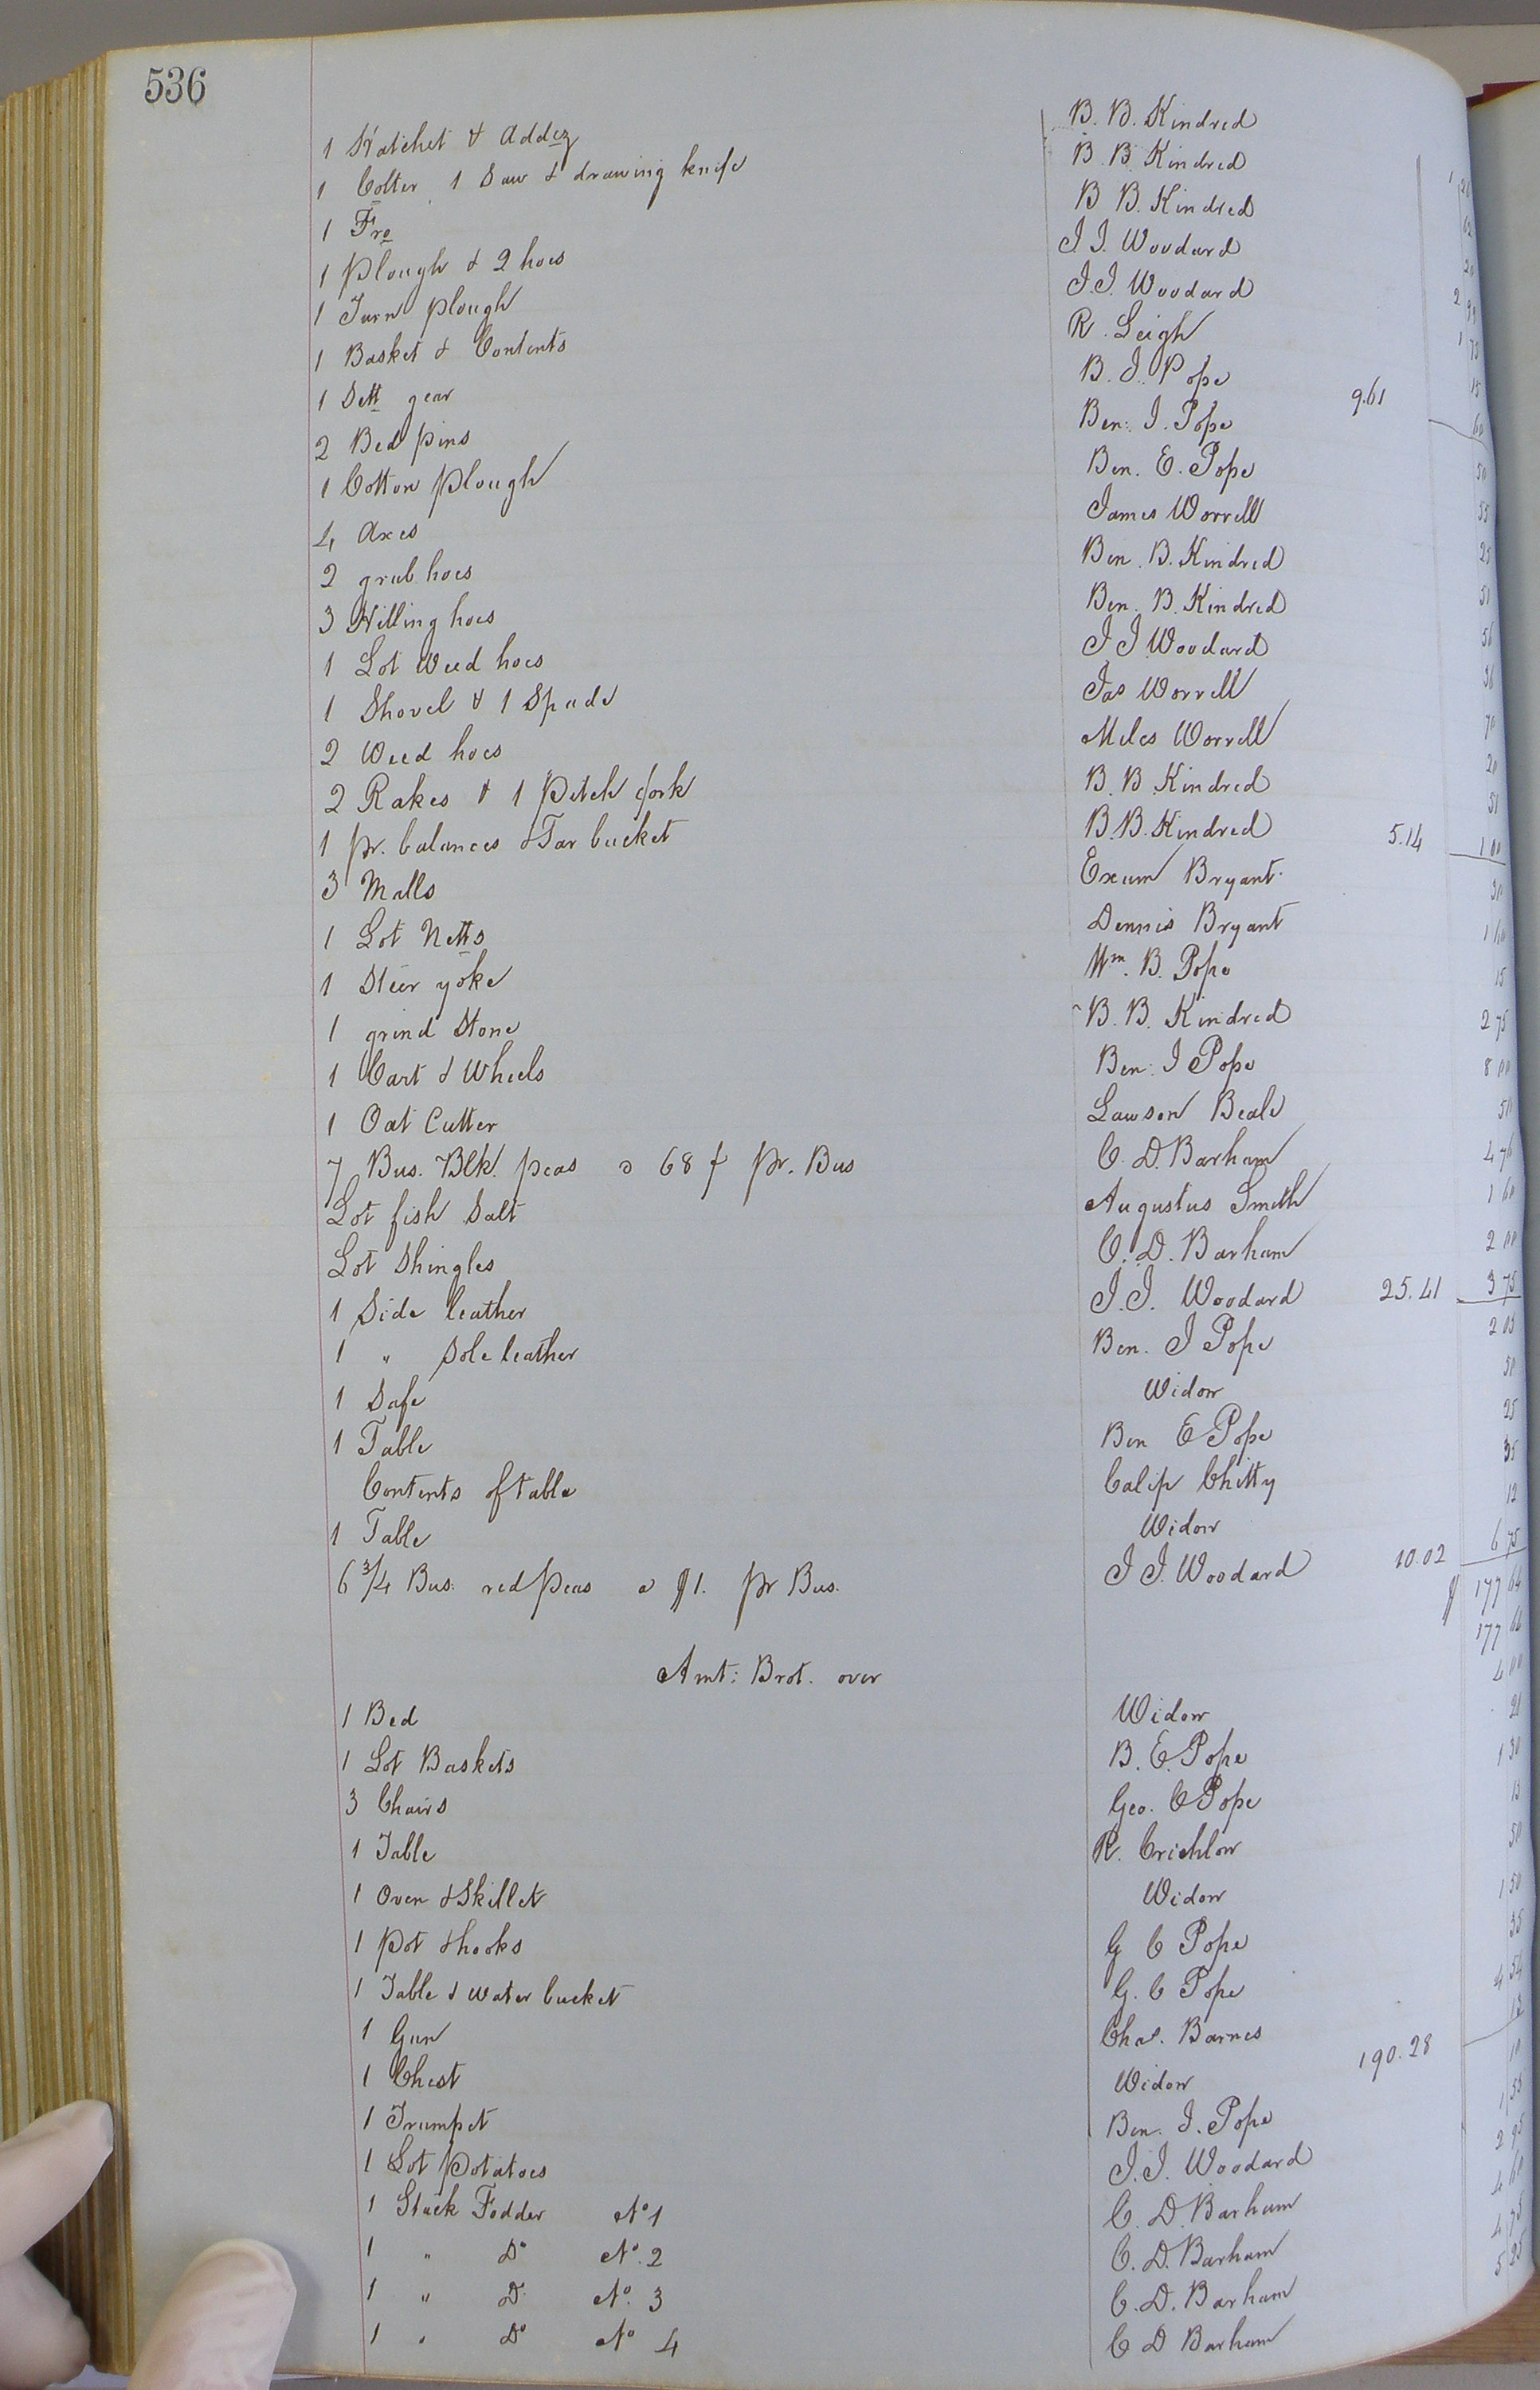 536
1 Hatchet & Addez B. B. Kindred 1
1 Colter 1 Saw & drawing knife B. B. Kindred
1 Fro B B. Kindred 20
1 Plough & 2 hoes J J. Woodard 2
1 Turn plough J. J. Woodard 1 75
1 Basket & Contents R. Leigh 15
1 Sett gear B. J. Pope 9.61 60
2 Bed pins Ben: J. Pope 50
1 Cotton Plough Ben. E. Pope 55
4 Axes James Worrell 25
2 grub hoes Ben. B. Kindred 51
3 Hilling hoes Ben. B. Kindred 56
1 Lot Weed hoes J J Woodard 36
1 Shovel & 1 Spade Jas Worrell 70
2 Weed hoes Miles Worrell 20
2 Rakes & 1 Pitch fork B. B. Kindred 51
1 pr. balances & Tar bucket B. B. Kindred 5.14 1 00
3 Malls Exum Bryant
1 Lot Netts Dennis Bryant 1 60
1 Steer yoke Wm. B. Pope 15
1 grind Stone B. B. Kindred 2 75
1 Cart & Wheels Ben: J Pope 8 00
1 Oat Cutter Lawson Beale 50
7 Bus. Blk. peas @ 68 ¢ pr. Bus C. D. Barham 4 76
Lot fish Salt Augustus Smith 1 60
Lot Shingles C. D. Barham 2 00
1 Side leather J. J. Woodard 25.41 3 75
1 " Sole leather Ben. J Pope 2 05
1 Safe Widow 50
1 Table Ben E Pope 25
Contents of table Calip Chitty 35
1 Table Widow 12
6 3/4 Bus. red peas @ $1. pr Bus. J J. Woodard 10.02 6 75
$ 177 64
Amt: Brot. over 177
1 Bed Widow 4 00
1 Lot Baskets B. E. Pope
3 Chairs Geo. C Pope 1 30
1 Table R. Crichlow
1 Oven & Skillet Widow 50
1 pot & hooks G C Pope 1 50
1 Table & water bucket G. C Pope 35
1 Gun Chas. Barnes 4 54
1 Chest Widow 190.28
1 Trumpet Ben. J. Pope 10
1 Lot potatoes J. J. Woodard 1 55
1 Stack Fodder No 1 C. D. Barham 2 95
1 " Do No. 2 C. D. Barham 4 60
1 " D. No. 3 C. D. Barham 4 75
1 " Do No 4 C D Barham 5 25